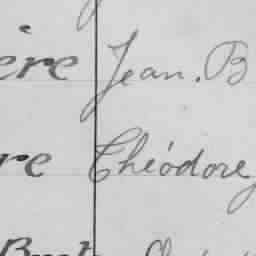 ère Jean. B
re Théodore